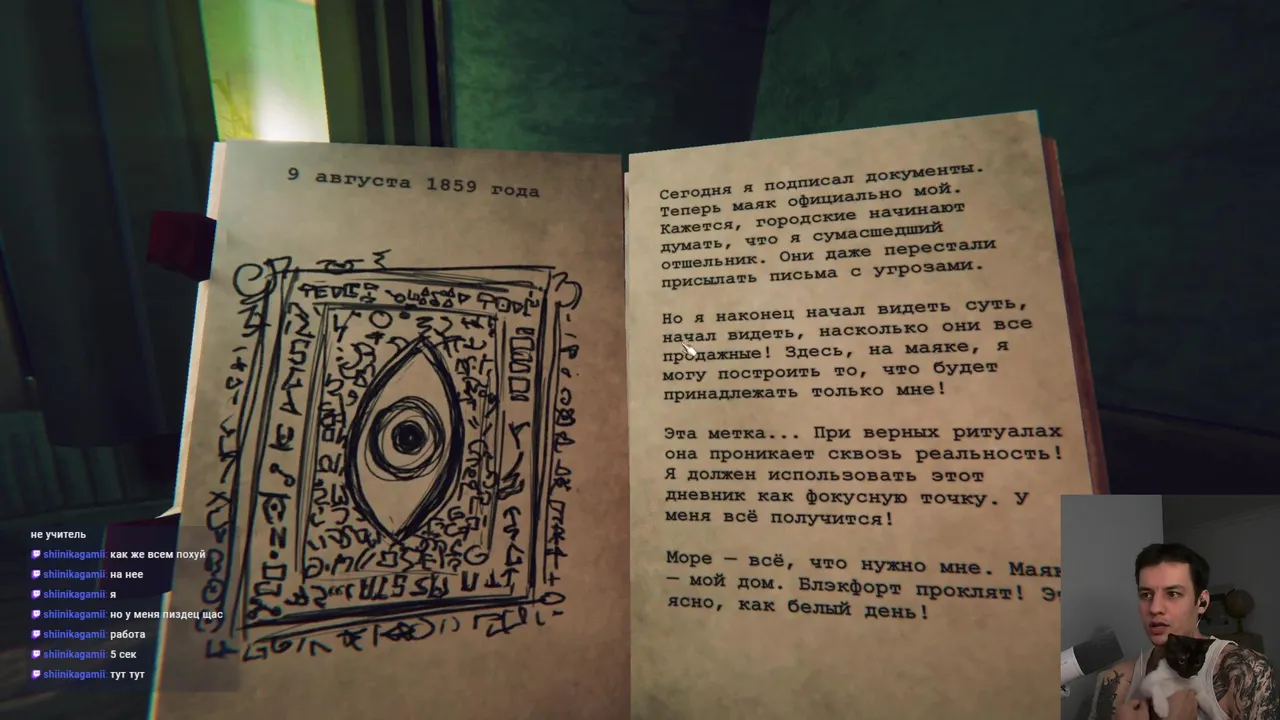 9 августа 1859 года
Сегодня я подписал документы.
Теперь маяк официально мой.
Кажется, городские начинают
думать, что я сумасшедший
отшельник. Они даже перестали
присылать письма с угрозами.
Но я наконец начал видеть суть,
начал видеть, насколько они все
продажные! Здесь, на маяке, я
могу построить то, что будет
принадлежать только мне!
Эта метка... При верных ритуалах
она проникает сквозь реальность!
Я должен использовать этот
дневник как фокусную точку. У
меня всё получится!
Море — всё, что нужно мне.
— мой дом. Блэкфорт проклят!
ясно, как белый день!
не учитель
shiinikagamii: как же всем похуй
shiinikagamii: на нее
shiinikagamii: я
shiinikagamii: но у меня пиздец щас
shiinikagamii: работа
shiinikagamii: 5 сек
shiinikagamii: тут тут